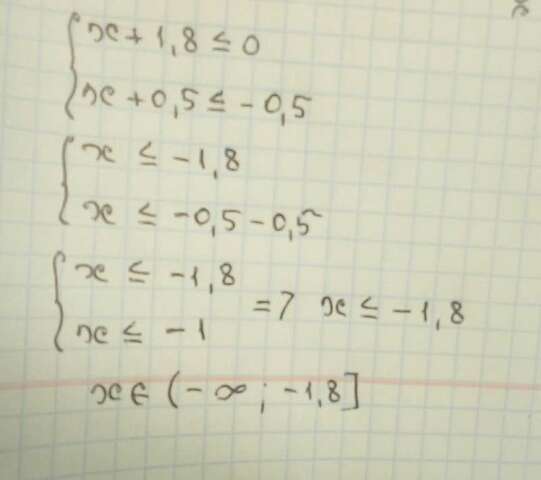 { x + 1,8 ≤ 0
x + 0,5 ≤ - 0,5
{ x ≤ -1,8
x ≤ -0,5 - 0,5
{ x ≤ -1,8
x ≤ -1 => x ≤ -1,8
x ∈ (- ∞ ; -1,8]